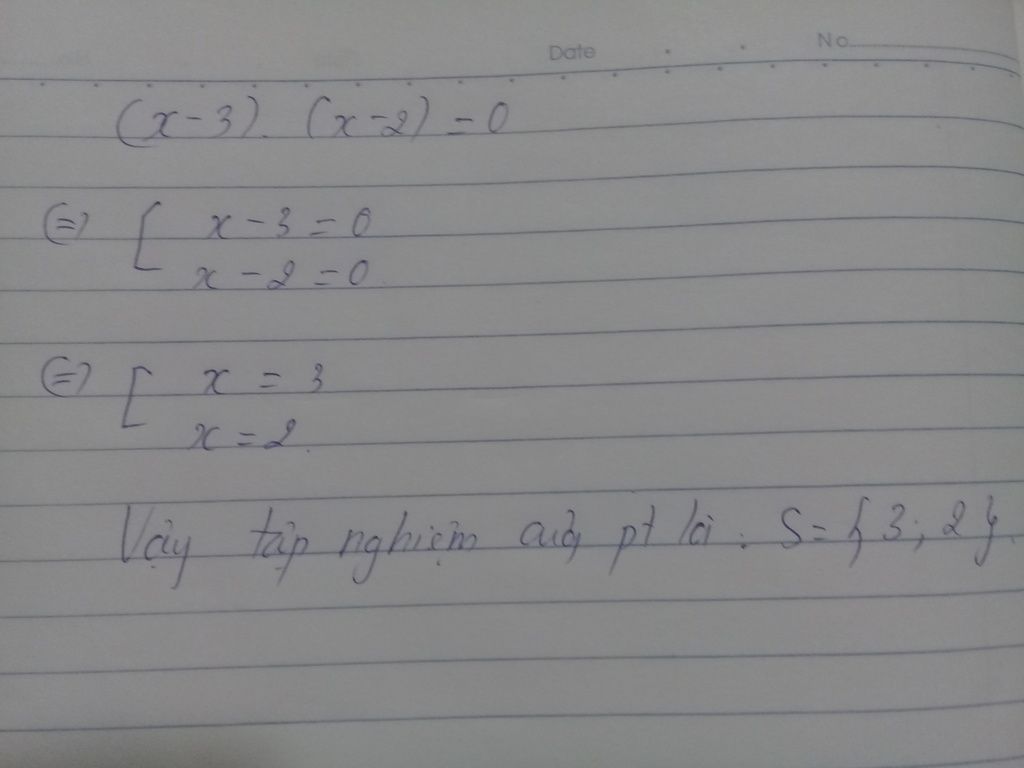 Date No
(x-3). (x-2) = 0
(=) [ x - 3 = 0
x - 2 = 0
(=) [ x = 3
x = 2.
Vậy tập nghiệm của pt là : S = { 3 ; 2 }.